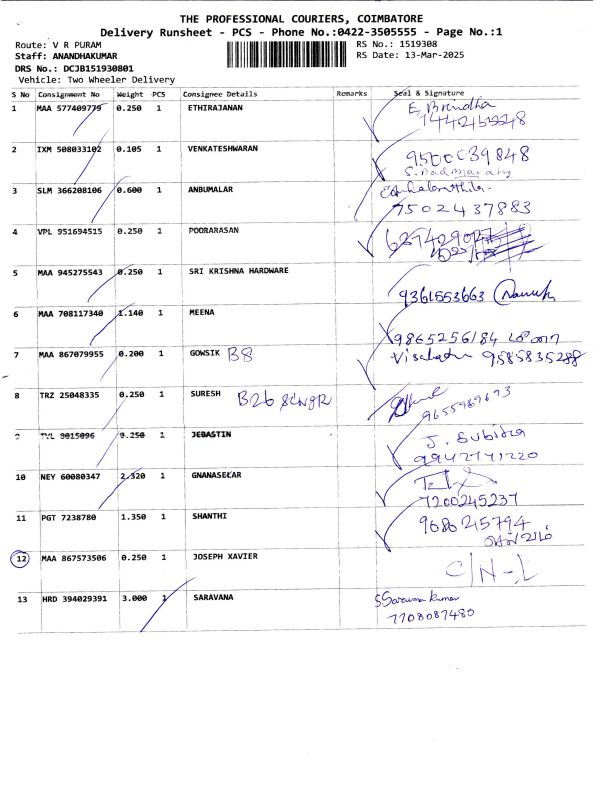 THE PROFESSIONAL COURIERS, COIMBATORE
Delivery Runsheet - PCS - Phone No.:0422-3505555 - Page No.:1
Route: V R PURAM
RS No.: 1519308
Staff: ANANDHAKUMAR
RS Date: 13-Mar-2025
DRS No.: DCJB151930801
Vehicle: Two Wheeler Delivery
S No Consignment No Weight PCS Consignee Details Remarks Seal & Signature
1 MAA 577409779 0.250 1 ETHIRAJANAN E. Brendha
2 IXM 508033102 0.105 1 VENKATESHWARAN 9500039848
3 SLM 366208106 0.600 1 ANBUMALAR
7502437883
4 VPL 951694515 0.250 1 POORARASAN
5 MAA 945275543 0.250 1 SRI KRISHNA HARDWARE
9361553663
6 MAA 708117340 1.140 1 MEENA
9865256184 மீனா
7 MAA 867079955 0.200 1 GOWSIK B8 9585835288
8 TRZ 25048335 0.250 1 SURESH B26
9655969693
9 TVL 9015096 0.250 1 JEBASTIN J. Subitra
9942771220
10 NEY 60080347 2.320 1 GNANASEKAR
7200245237
11 PGT 7238780 1.350 1 SHANTHI 9686245794
12 MAA 867573506 0.250 1 JOSEPH XAVIER C/N-L
13 HRD 394029391 3.000 1 SARAVANA S Saravana Kumar
7708087480